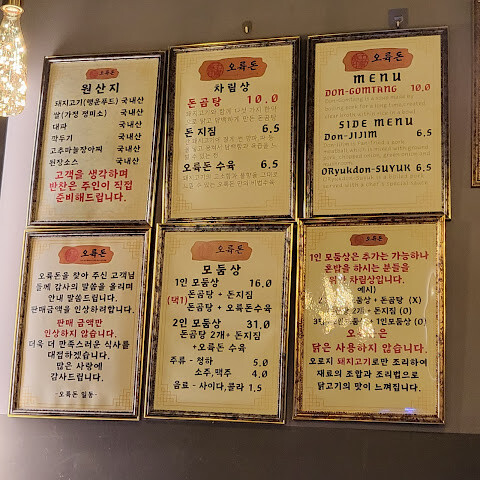 오륙돈
원산지
돼지고기(행운푸드) 국내산
쌀(가정 정미소) 국내산
대파 국내산
깍두기 국내산
고추마늘장아찌 국내산
된장소스 국내산
고객을 생각하며
반찬은 주인이 직접
준비해드립니다.
오륙돈
차림상
돈곰탕 10.0
돈지짐 6.5
오륙돈 수육 6.5
오륙돈
MENU
DON-GOMTANG 10.0
SIDE MENU
DON-JIJIM 6.5
ORyukdon-SUYUK 6.5
오륙돈
오륙돈을 찾아 주신 고객님
들께 감사의 말씀을 올리며
안내 말씀드립니다.
판매금액을 인상하려합니다.
판매 금액만
인상하지 않습니다.
더욱 더 만족스러운 식사를
대접하겠습니다.
많은 사랑에
감사드립니다.
-오륙돈 일동-
오륙돈
모둠상
1인 모둠상 16.0
(택1) 돈곰탕 + 돈지짐
돈곰탕 + 오륙돈수육
2인 모둠상 31.0
돈곰탕 2개+ 돈지짐
+오륙돈 수육
주류 - 청하 5.0
소주,맥주 4.0
음료 - 사이다,콜라 1.5
오륙돈
1인 모둠상은 추가는 가능하나
혼밥을 하시는 분들을
차림상입니다.
예시)
모둠상 + 돈곰탕 (X)
돈곰탕 2개 + 돈지짐 (O)
모둠상 + 1인모둠상 (O)
닭은 사용하지 않습니다.
오로지 돼지고기로만 조리하여
재료의 조합과 조리법으로
닭고기의 맛이 느껴집니다.